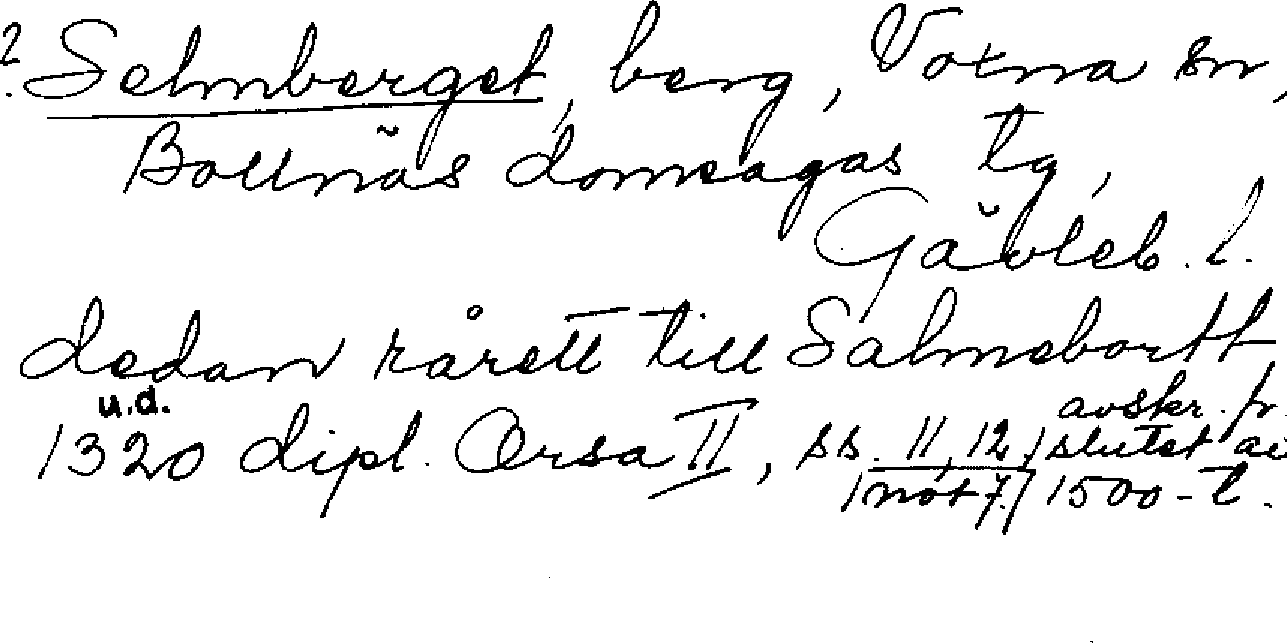 ? Selmberget, berg, Voxna sn,
Bollnäs domsagas tg,
Gävleb. l.
dedan rårett till Salmeborth
u.d.
1320 dipl. Orsa II, ss. 11, 12, avskr. fr.
/not 7./ slutet av
1500-t.